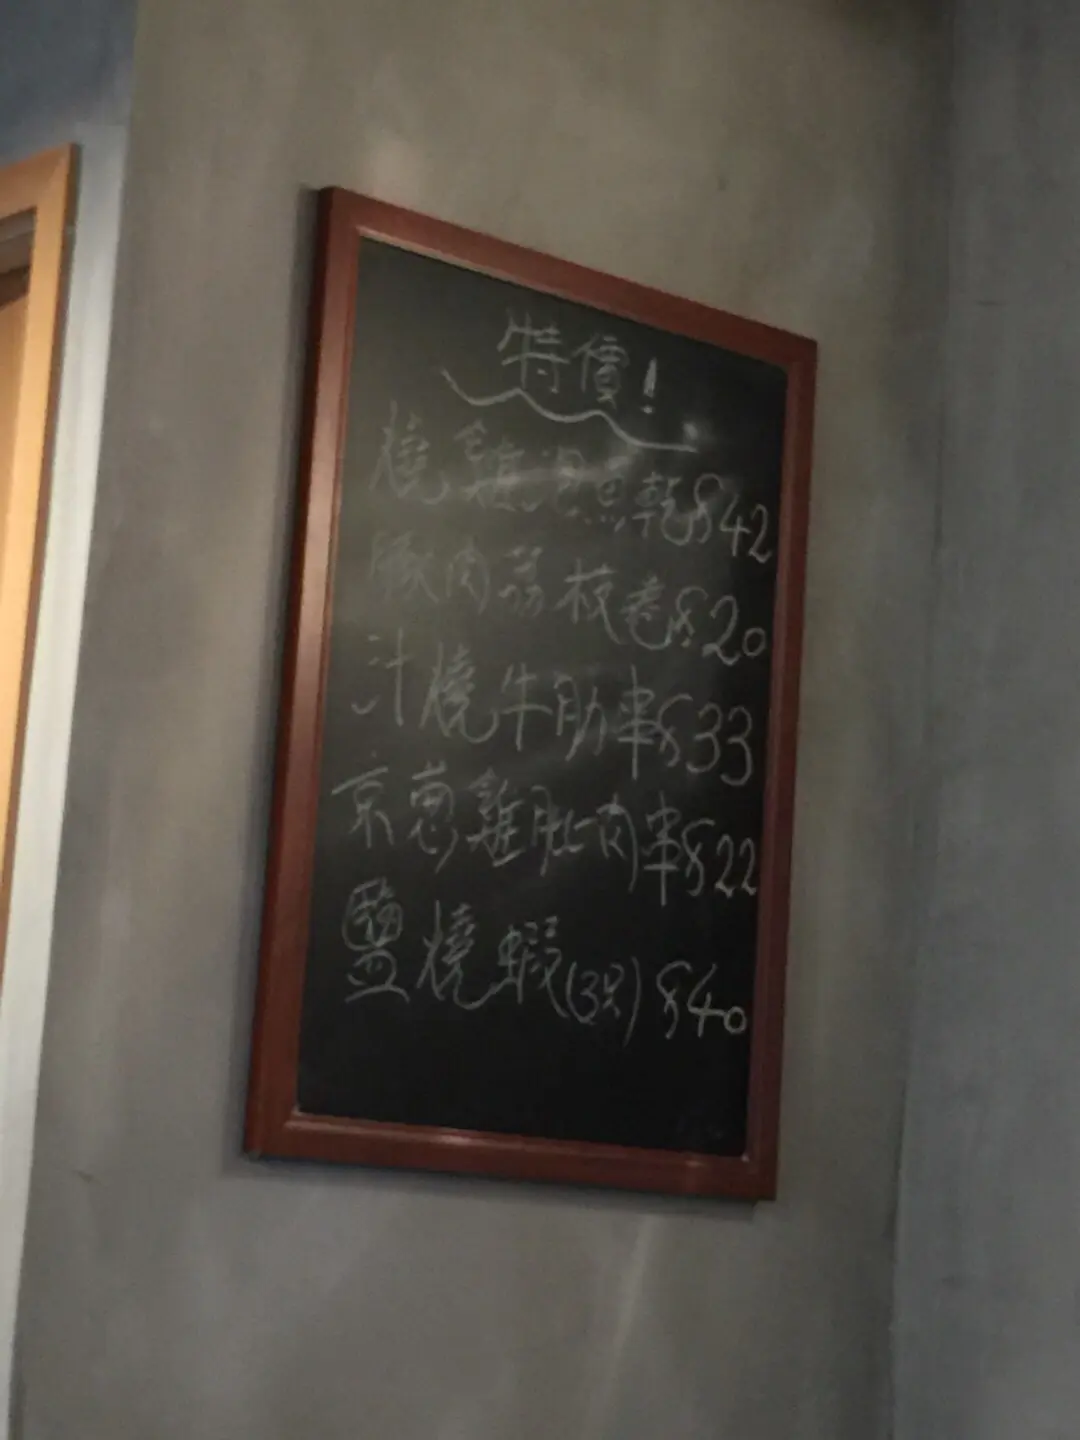 特價!
燒雞泡魚乾$42
豚肉荔枝卷$20
汁燒牛肋串$33
京蔥雞肶肉串$22
鹽燒蝦(3只)$40